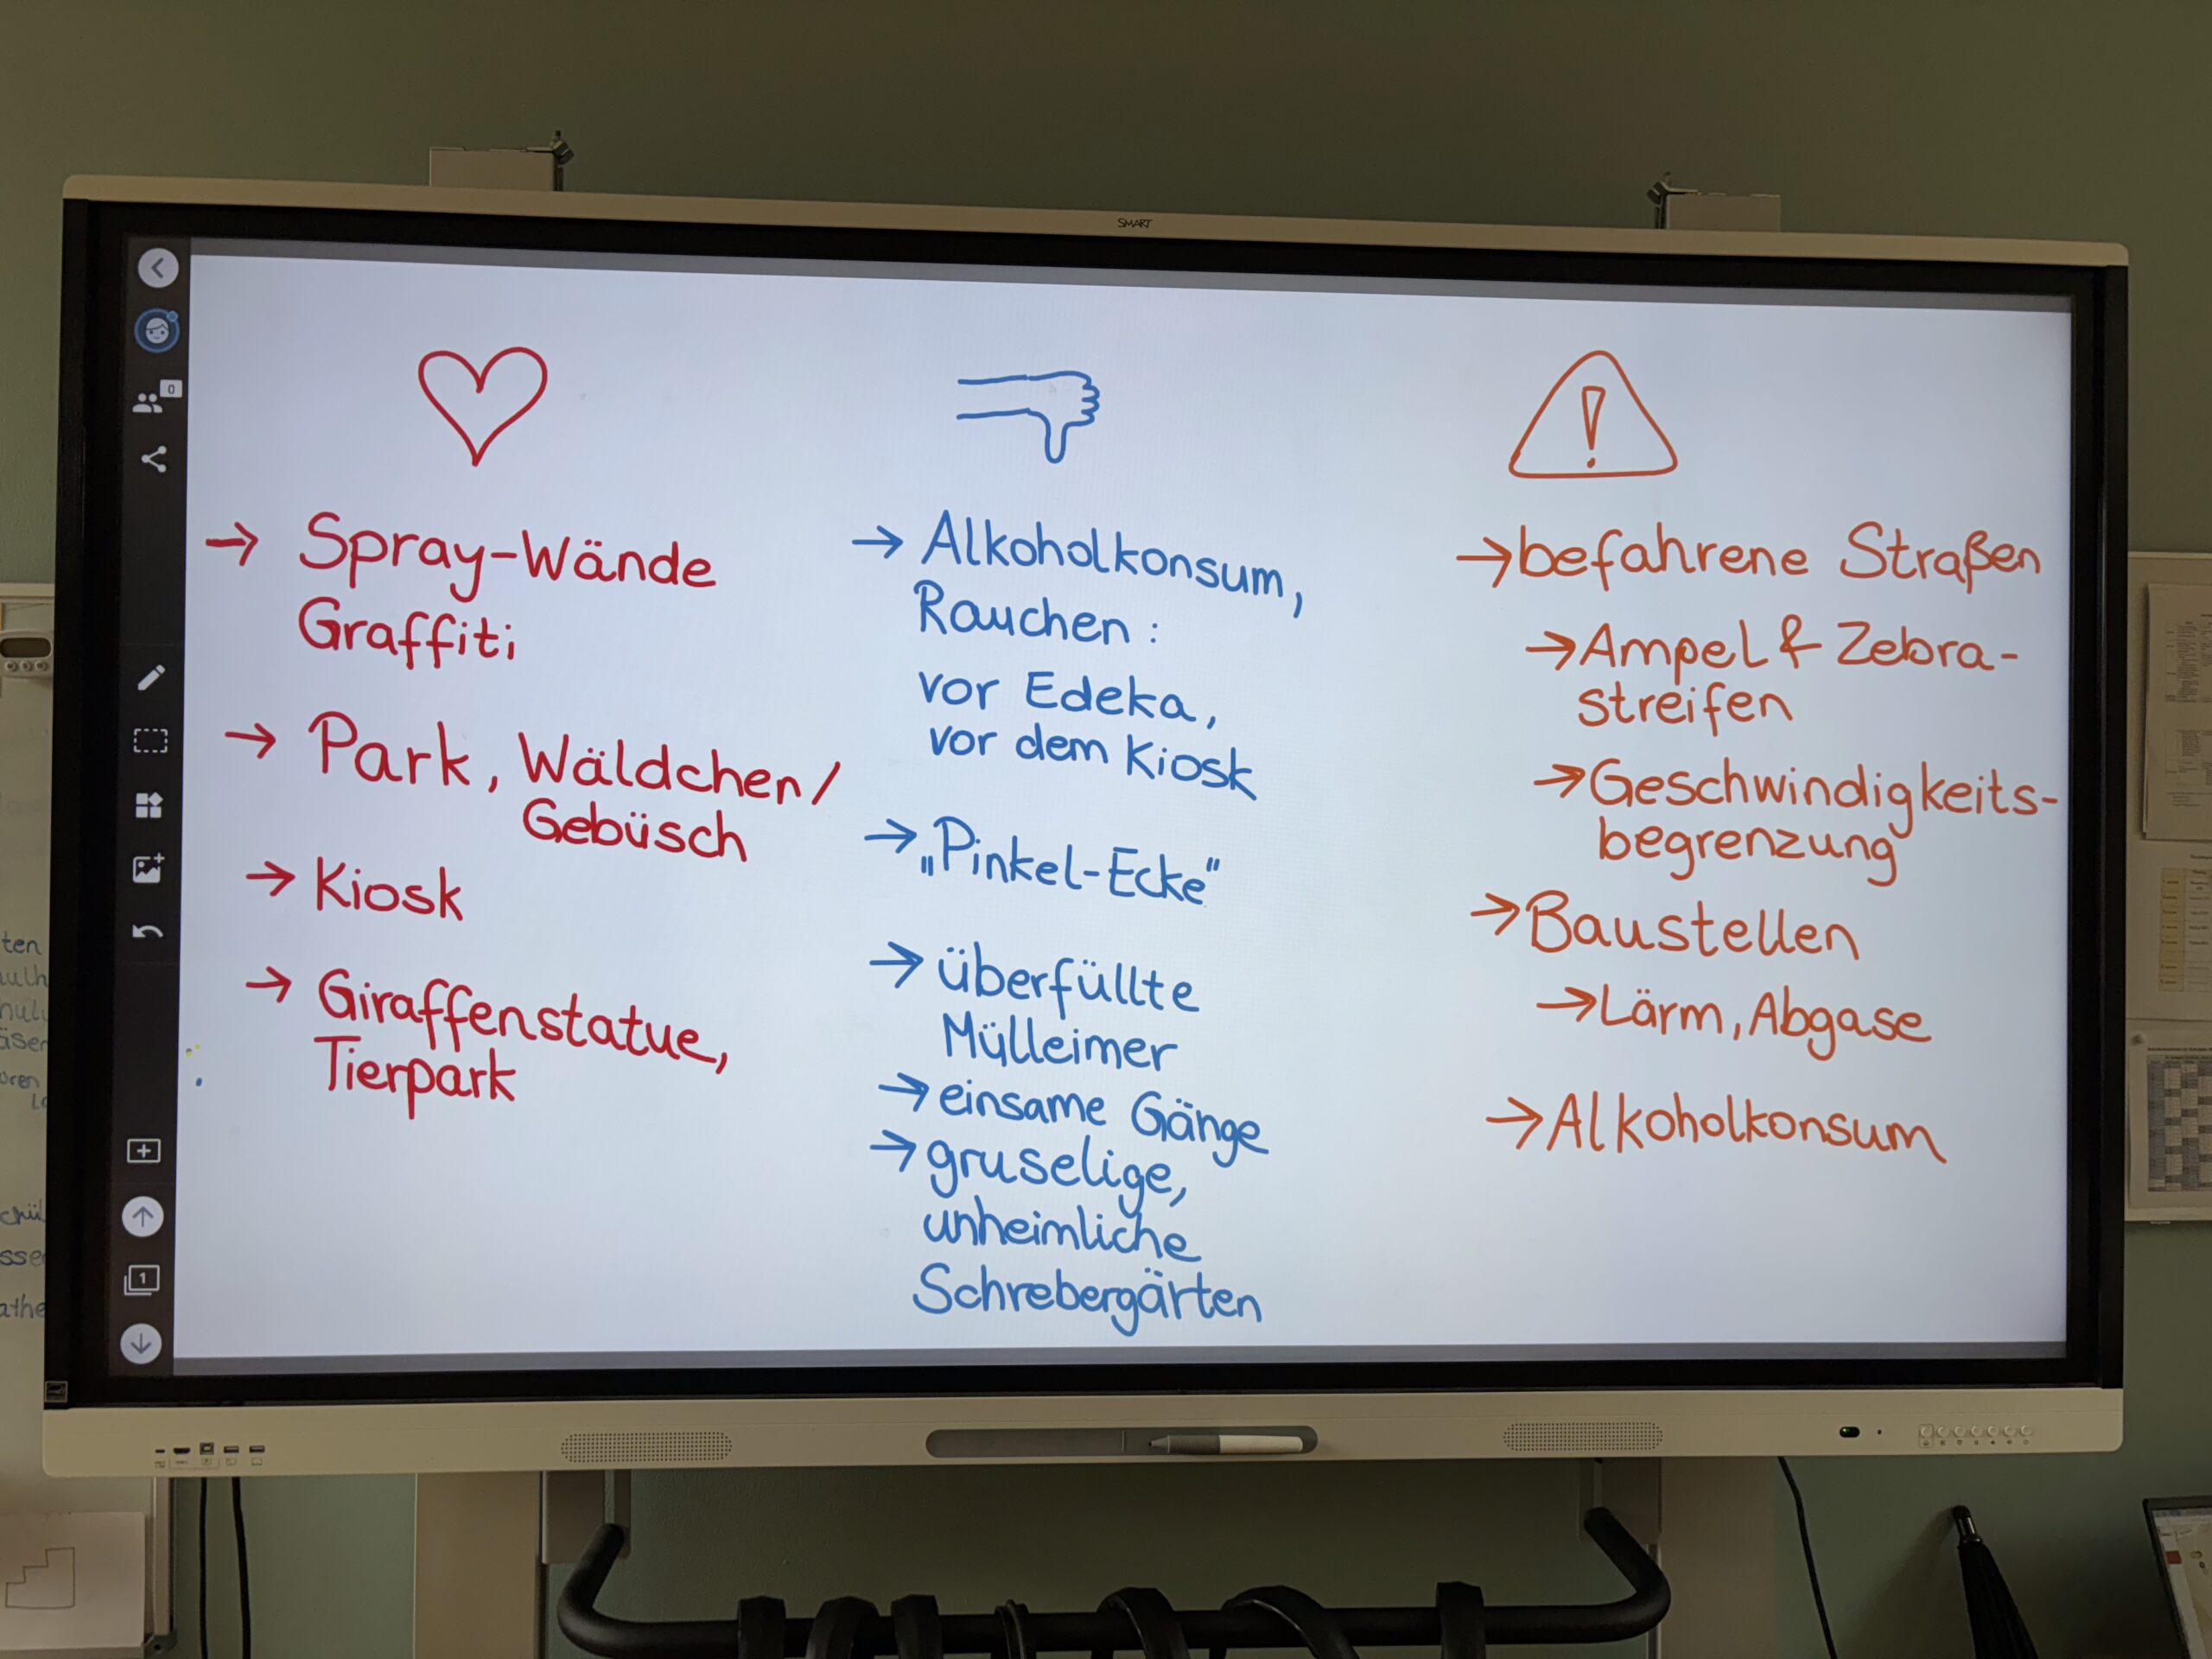 SMART
0
→ Spray-Wände
Graffiti
→ Park, Wäldchen/
Gebüsch
→ Kiosk
→ Giraffenstatue,
Tierpark
→ Alkoholkonsum,
Rauchen:
vor Edeka,
vor dem Kiosk
→ „Pinkel-Ecke"
→ überfüllte
Mülleimer
→ einsame Gänge
→ gruselige,
unheimliche
Schrebergärten
!
→ befahrene Straßen
→ Ampel & Zebra-
streifen
→ Geschwindigkeits-
begrenzung
→ Baustellen
→ Lärm, Abgase
→ Alkoholkonsum
1
ten